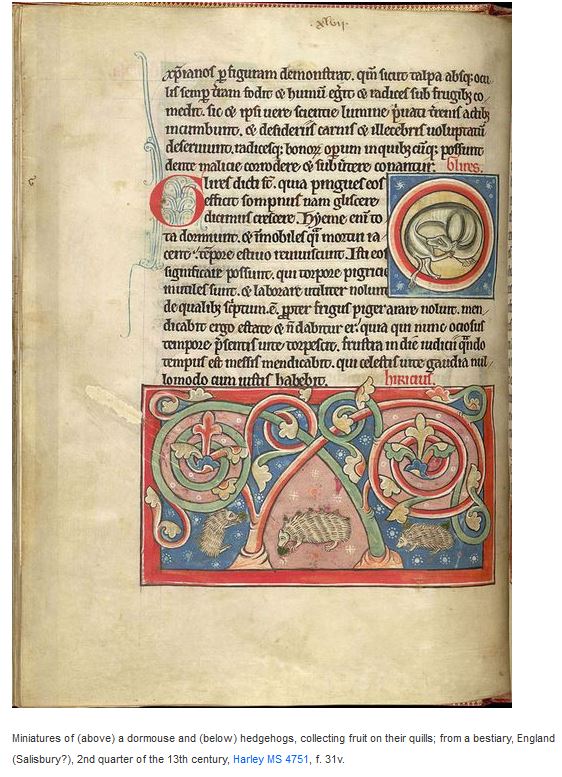 xlvij.
xp̄ianos p̱ figuram demonstrat. qm̄ sicut talpa absq; ocu
lis semp̱ t̄ram fodit & humū eḡit & radices sub frugib; co
medit. sic & ipsi vere scientie lumine p̍uati t̍renis actib;
incumbunt. & desideriis carnis & illecebris voluptatū
deseruiunt. radicesq; bonoꝝ opum in quib; cūq; possunt
dente malicie corrodere & subūtere conantur. Glires.
Glires dicti sȶ. quia pingues eos
efficit sompnus nam gliscere
dicimus crescere. Hyeme eni̅ to
ta dormiunt. & i̅mobiles q̍si mortui ia
cent. tēpore estiuo reuiuiscunt. Isti eos
significare possunt. qui torpore pigricie
inutiles sunt. & laborare utiliter nolunt
de qualib; sc̍ptum.ē. ꝓpter frigus piger arare noluit. men
dicabit ergo estate & n̄ dabitur ei. quia qui nunc ociosus
tempore p̍sentis uite torpescit. frustra in die iudicii q̍ndo
tempus est messis mendicabit. qui celestis uite gaudia nul
lomodo cum iustis habebit. hiriciuſ.
Miniatures of (above) a dormouse and (below) hedgehogs, collecting fruit on their quills; from a bestiary, England
(Salisbury?), 2nd quarter of the 13th century, Harley MS 4751, f. 31v.